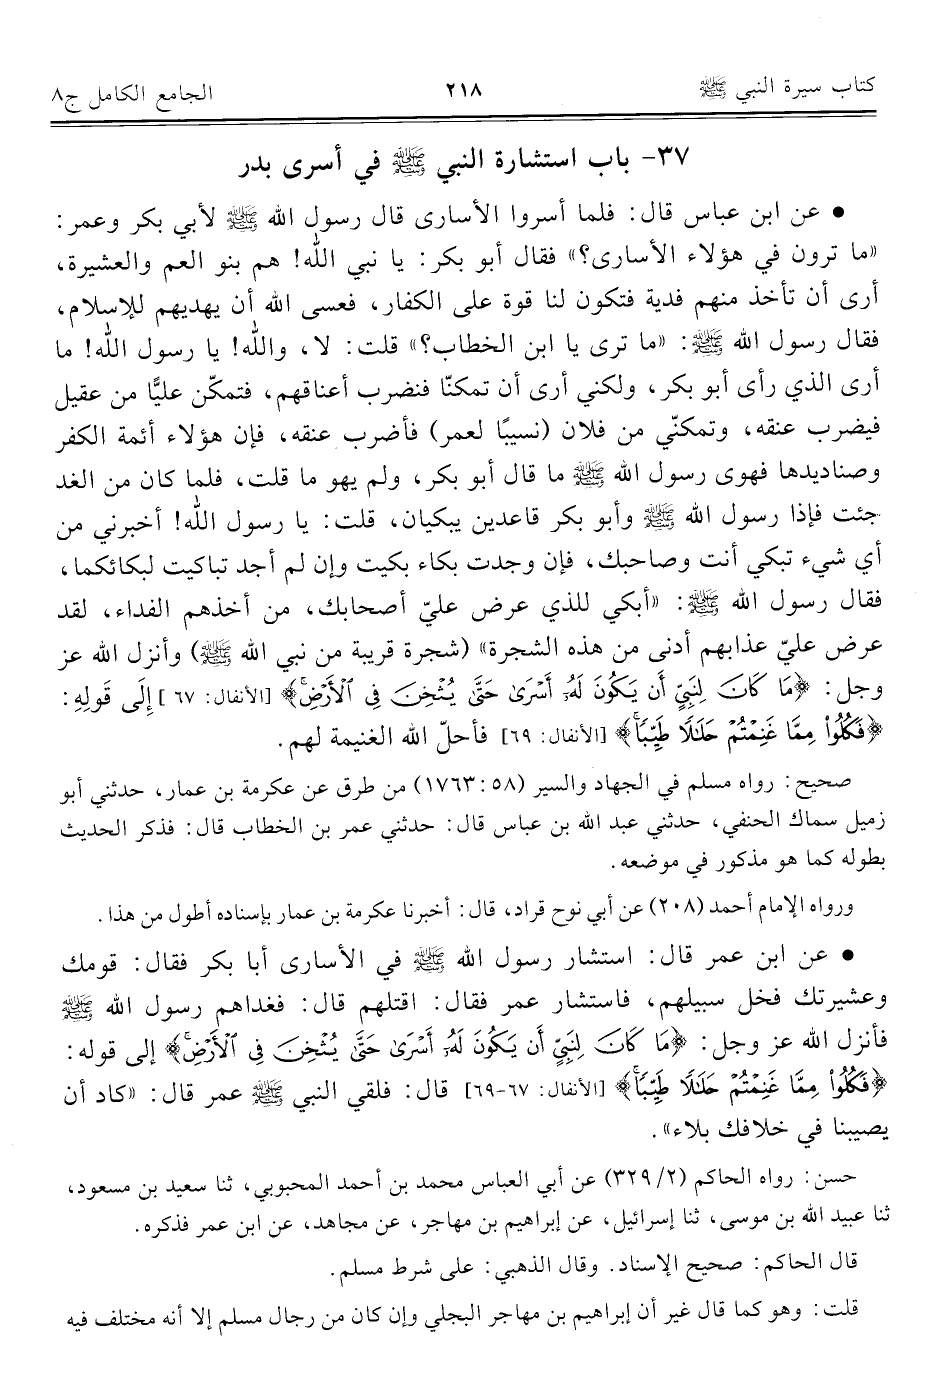 كتاب سيرة النبي ﷺ ٢١٨ الجامع الكامل ج٨
٣٧- باب استشارة النبي ﷺ في أسرى بدر
• عن ابن عباس قال: فلما أسروا الأسارى قال رسول الله ﷺ لأبي بكر وعمر:
«ما ترون في هؤلاء الأسارى؟» فقال أبو بكر: يا نبي الله! هم بنو العم والعشيرة،
أرى أن تأخذ منهم فدية فتكون لنا قوة على الكفار، فعسى الله أن يهديهم للإسلام،
فقال رسول الله ﷺ: «ما ترى يا ابن الخطاب؟» قلت: لا، والله! يا رسول الله! ما
أرى الذي رأى أبو بكر، ولكني أرى أن تمكنّا فنضرب أعناقهم، فتمكّن عليًّا من عقيل
فيضرب عنقه، وتمكنّي من فلان (نسيبًا لعمر) فأضرب عنقه، فإن هؤلاء أئمة الكفر
وصناديدها فهوى رسول الله ﷺ ما قال أبو بكر، ولم يهو ما قلت، فلما كان من الغد
جئت فإذا رسول الله ﷺ وأبو بكر قاعدين يبكيان، قلت: يا رسول الله! أخبرني من
أي شيء تبكي أنت وصاحبك، فإن وجدت بكاء بكيت وإن لم أجد تباكيت لبكائكما،
فقال رسول الله ﷺ: «أبكي للذي عرض عليّ أصحابك، من أخذهم الفداء، لقد
عرض عليّ عذابهم أدنى من هذه الشجرة» (شجرة قريبة من نبي الله ﷺ) وأنزل الله عز
وجل: ﴿مَا كَانَ لِنَبِيٍّ أَن يَكُونَ لَهُۥٓ أَسْرَىٰ حَتَّىٰ يُثْخِنَ فِي ٱلْأَرْضِۚ﴾ [الأنفال: ٦٧] إِلَى قَولِهِ:
﴿فَكُلُوا۟ مِمَّا غَنِمْتُمْ حَلَـٰلًا طَيِّبًاۚ﴾ [الأنفال: ٦٩] فأحلّ الله الغنيمة لهم.
صحيح: رواه مسلم في الجهاد والسير (٥٨: ١٧٦٣) من طرق عن عكرمة بن عمار، حدثني أبو
زميل سماك الحنفي، حدثني عبد الله بن عباس قال: حدثني عمر بن الخطاب قال: فذكر الحديث
بطوله كما هو مذكور في موضعه.
ورواه الإمام أحمد (٢٠٨) عن أبي نوح قراد، قال: أخبرنا عكرمة بن عمار بإسناده أطول من هذا.
• عن ابن عمر قال: استشار رسول الله ﷺ في الأسارى أبا بكر فقال: قومك
وعشيرتك فخل سبيلهم، فاستشار عمر فقال: اقتلهم قال: ففداهم رسول الله ﷺ
فأنزل الله عز وجل: ﴿مَا كَانَ لِنَبِيٍّ أَن يَكُونَ لَهُۥٓ أَسْرَىٰ حَتَّىٰ يُثْخِنَ فِي ٱلْأَرْضِۚ﴾ إلى قوله:
﴿فَكُلُوا۟ مِمَّا غَنِمْتُمْ حَلَـٰلًا طَيِّبًاۚ﴾ [الأنفال: ٦٧-٦٩] قال: فلقي النبي ﷺ عمر قال: «كاد أن
يصيبنا في خلافك بلاء».
حسن: رواه الحاكم (٢/ ٣٢٩) عن أبي العباس محمد بن أحمد المحبوبي، ثنا سعيد بن مسعود،
ثنا عبيد الله بن موسى، ثنا إسرائيل، عن إبراهيم بن مهاجر، عن مجاهد، عن ابن عمر فذكره.
قال الحاكم: صحيح الإسناد. وقال الذهبي: على شرط مسلم.
قلت: وهو كما قال غير أن إبراهيم بن مهاجر البجلي وإن كان من رجال مسلم إلا أنه مختلف فيه